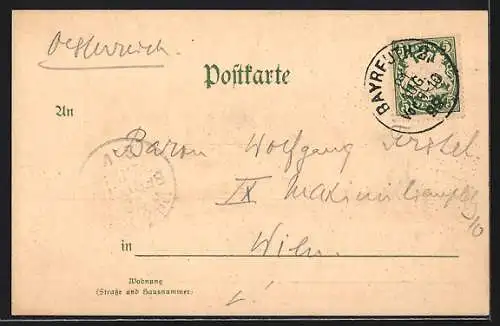 Oesterreich.
Postkarte
BAYREUTH
5
An
Baron Wolfgang
IX Maximilianplatz
10
in Wien
Wohnung
(Straße und Hausnummer)